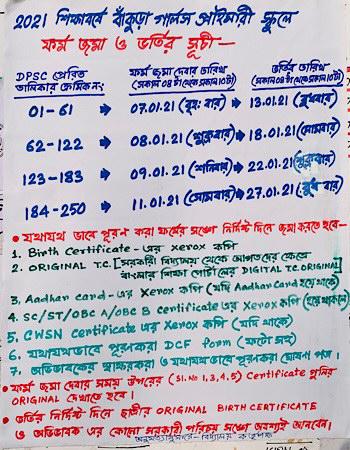 2021 শিক্ষাবর্ষে বাঁকুড়া গার্লস প্রাইমারী স্কুলে
ফর্ম জমা ও ভর্তির সূচী—
DPSC প্রেরিত তালিকার ক্রমিক নং: ফর্ম জমা দেবার তারিখ (সকাল 08 টা থেকে সকাল 10 টা) ভর্তির তারিখ (সকাল 08 টা থেকে সকাল 10 টা)
01-61 → 07.01.21 (বৃহঃ বার) → 13.01.21 (বুধবার)
62-122 → 08.01.21 (শুক্রবার) → 18.01.21 (সোমবার)
123-183 → 09.01.21 (শনিবার) → 22.01.21 (শুক্রবার)
184-250 → 11.01.21 (সোমবার) → 27.01.21 (বুধবার)
• যথাযথ ভাবে পূরণ করা ফর্মের সঙ্গে নির্দিষ্ট দিনে জমা করতে হবে—
1. Birth Certificate - এর Xerox কপি
2. ORIGINAL T.C. [সরকারী বিদ্যালয় থেকে আগতদের ক্ষেত্রে
বাংলার শিক্ষা পোর্টালের DIGITAL T.C. ORIGINAL]
3. Aadhar Card - এর Xerox কপি (যদি Aadhar Card হয়ে থাকে)
4. SC/ST/OBC A/OBC B Certificate এর Xerox কপি (হয়ে থাকলে)
5. CWSN Certificate এর Xerox কপি (যদি থাকে)
6. যথাযথভাবে পূরণকরা DCF form (ফটো সহ)
7. অভিভাবকের স্বাক্ষরকরা ও যথাযথভাবে পূরণকরা ঘোষণা পত্র।
• ফর্ম জমা দেবার সময় উপরের (Sl. No 1,3,4,5) Certificate গুলির
ORIGINAL দেখাতে হবে।
• ভর্তির নির্দিষ্ট দিনে ছাত্রীর ORIGINAL BIRTH CERTIFICATE
ও অভিভাবক এর কোনো সরকারী পরিচয় সঙ্গে অবশ্যই আনবেন।
অনুমত্যানুসারে - বিদ্যালয় কর্তৃপক্ষ